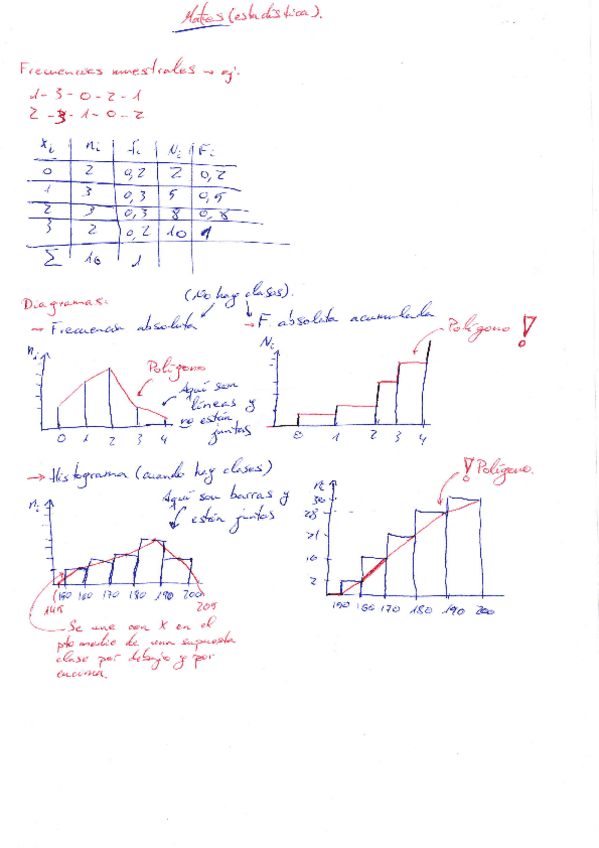 Mates (estadística).
Frecuencias muestrales → ej.
1 - 3 - 0 - 2 - 1
2 - 3 - 1 - 0 - 2
xi ni fi Ni Fi
0 2 0,2 2 0,2
1 3 0,3 5 0,5
2 3 0,3 8 0,8
3 2 0,2 10 1
Σ 10 1
(No hay clases).
Diagramas:
→ Frecuencia absoluta → F. absoluta acumulada
Polígono !
ni Ni
Polígono
Aquí son
líneas y
no están
juntas
0 1 2 3 4
0 1 2 3 4
→ Histograma (cuando hay clases)
! Polígono.
Aquí son barras y
están juntas
ni
30
28
21
10
2
150 160 170 180 190 200
145 205
150 160 170 180 190 200
Se une con X en el
pto medio de una supuesta
clase por debajo y por
encima.